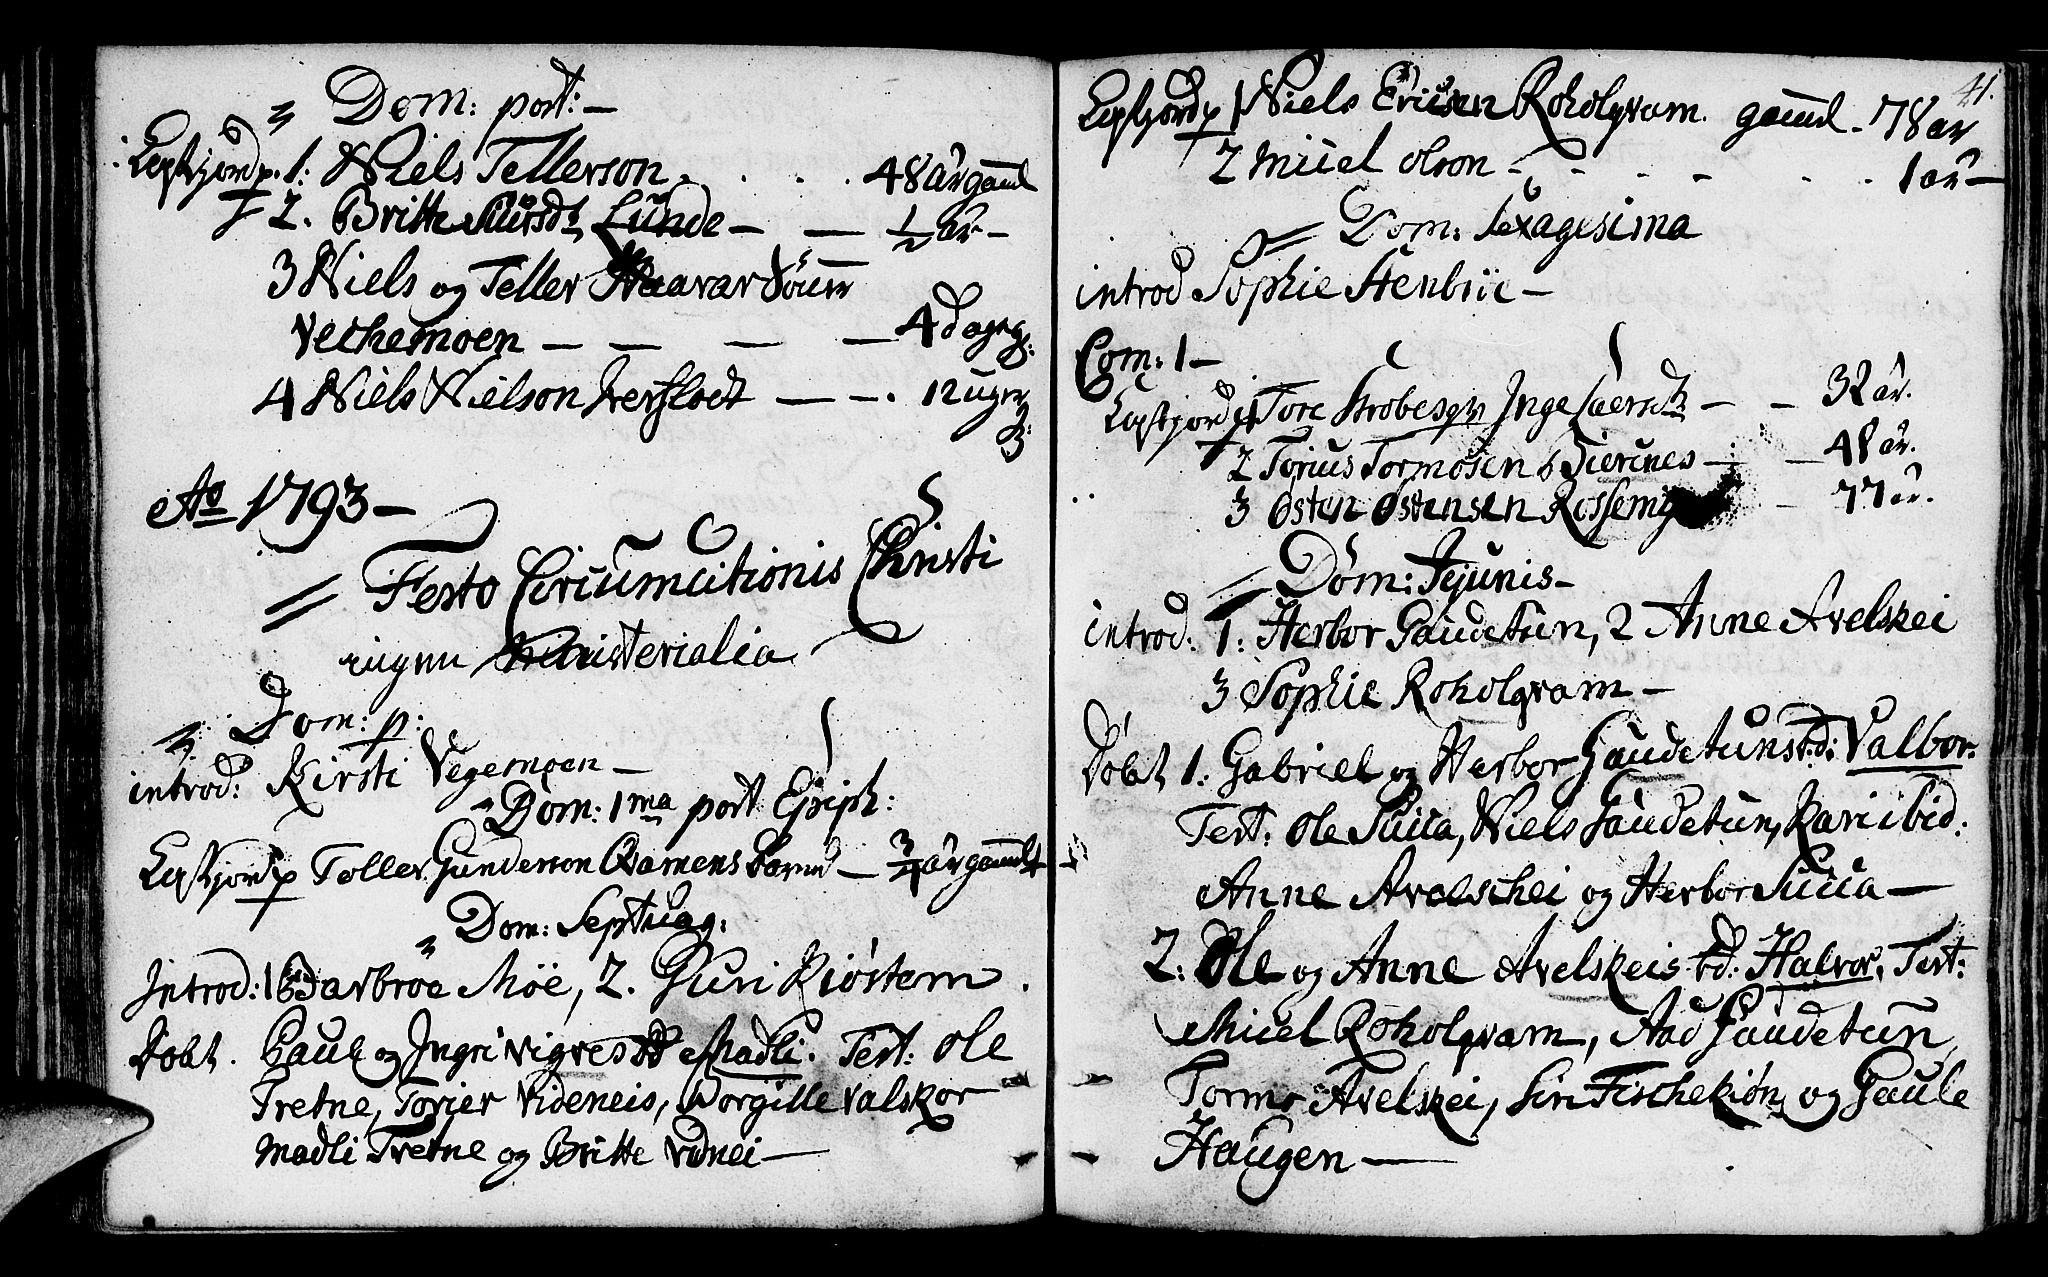 Dom: post: —
1: Niels Tellerson . . . . 48 år gaml
2. Britte Siursdt Lunde — — 1/2 år —
3 Niels og Teller
Vechemoen — — — — 4 dage g:
4 Niels Nielson — — . 12 uger
g:
Ao 1793 —
Festo Circumcitionis Christi
ingen ministerialia
Dom: p:
introd: Kirsti Vegemoen —
Dom: 1ma post Epiph:
Teller Gunderson barn — 3/4 år gamelt
Dom: Septuag:
Introd: 1 Barbroe Möe, 2. Guri Kiöstem .
Döbt . Pauls og Ingri Vignes Madli. Test: Ole
Tretne, Torier Videneis, Worgille Valskor
Madli Tretne og Britte Vidnei —
41.
1 Niels Ericsen Roholgvam. gamel - 78 år
2 Michel Olson - - - - . . 1 år —
Dom: Sexagesima
introd Sophie Stenbrie —
Com: 1 —
1 Tore Inge — — 32 år.
2 Torius Tormosen — — 48 år.
3 Østen Østensen - 77 år.
Dom: Jejunis —
introd: 1: Herbor Gaudetun, 2 Anne Avelskei
3 Sophie Roholgvam —
Döbt 1: Gabriel og Herbor Gaudetuns t.d: Valbor.
Test: Ole Suca, Niels Gaudetun, Kari ibid:
Anne Avelschei og Herbor Suca —
2: Ole og Anne Avelskeis td: Halvor, Test:
Michel Roholgvam, Aad Gaudetun,
Tormo Avelskei, Siri Fischekiön og Gaule
Haugen —